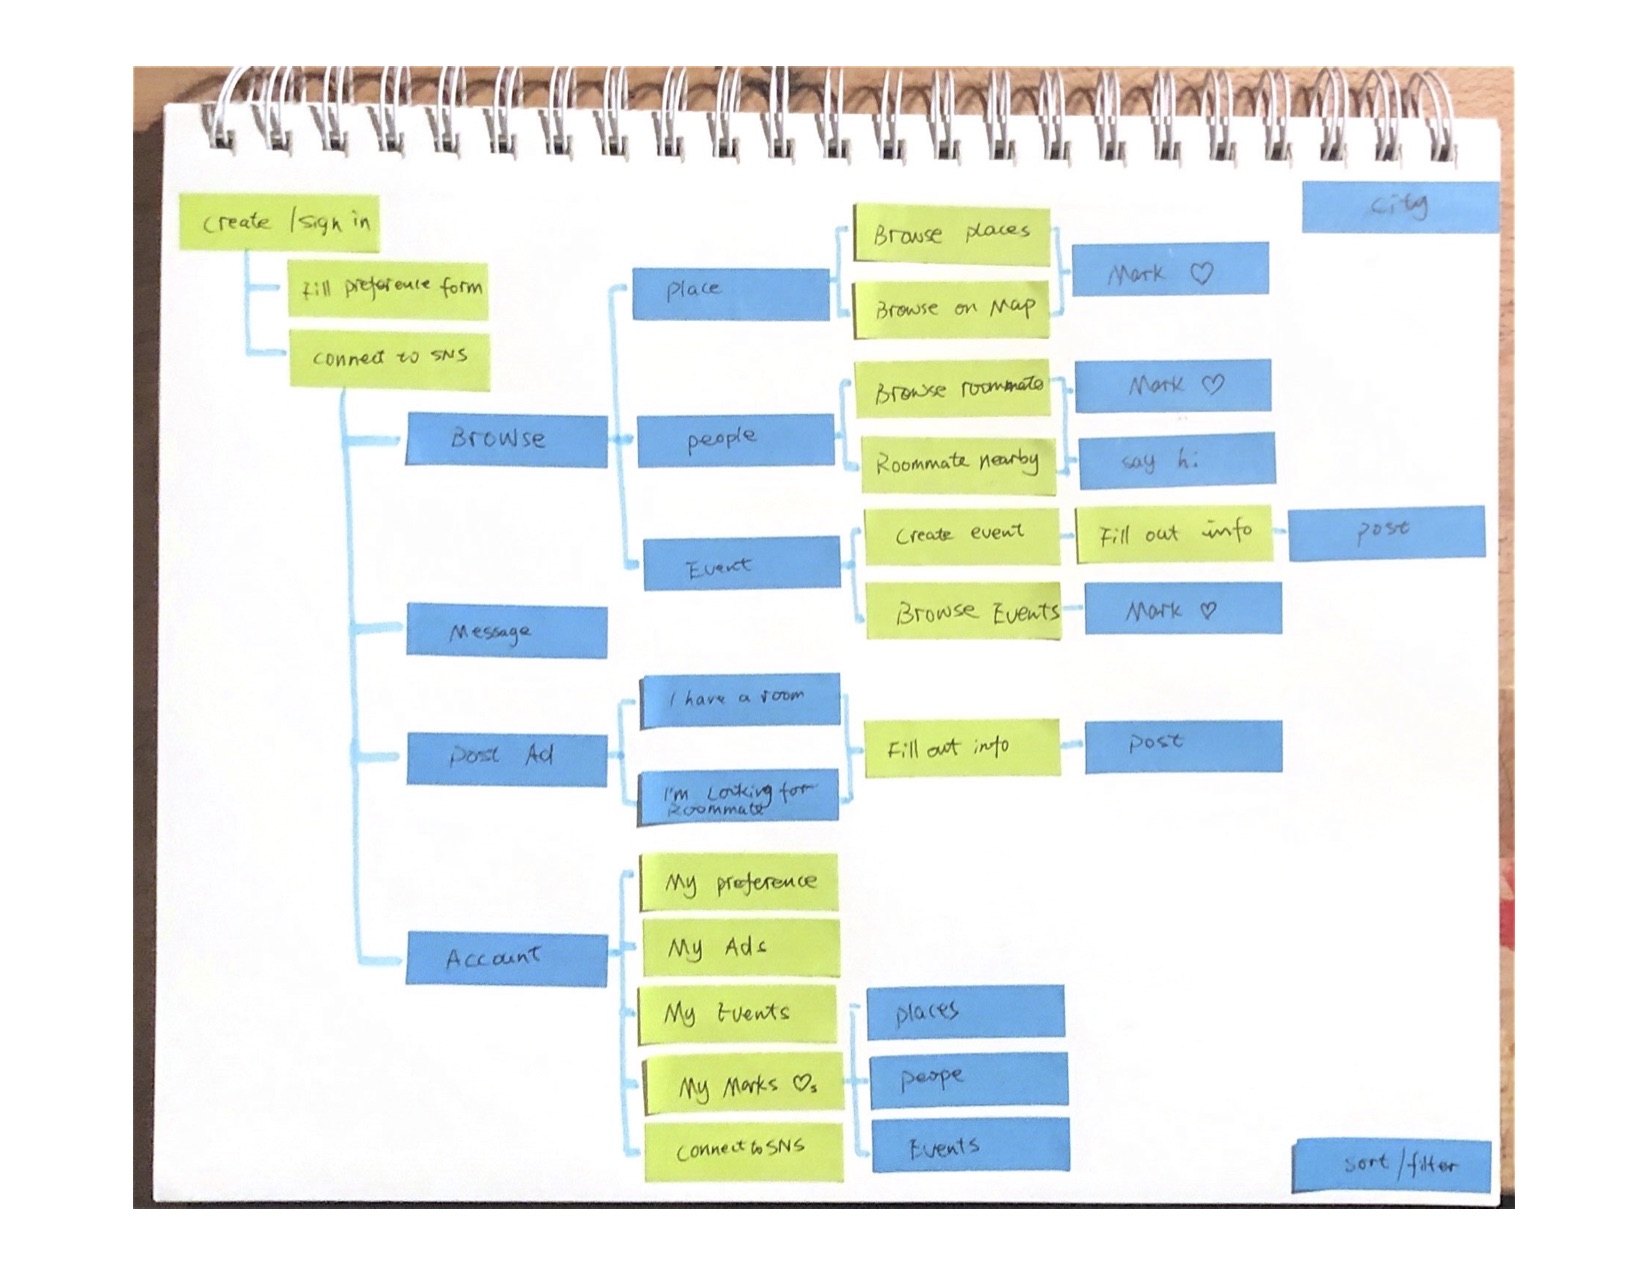 Create / sign in
Fill preference form
connect to SNS
Browse
place
Browse places
Browse on Map
Mark ♡
people
Browse roommate
Roommate nearby
Mark ♡
say hi
Event
Create event
Fill out info
post
Browse Events
Mark ♡
Message
post Ad
I have a room
I'm Looking for
Roommate
Fill out info
post
Account
My preference
My Ads
My Events
My Marks ♡s
places
peope
Events
Connect to SNS
city
sort / filter